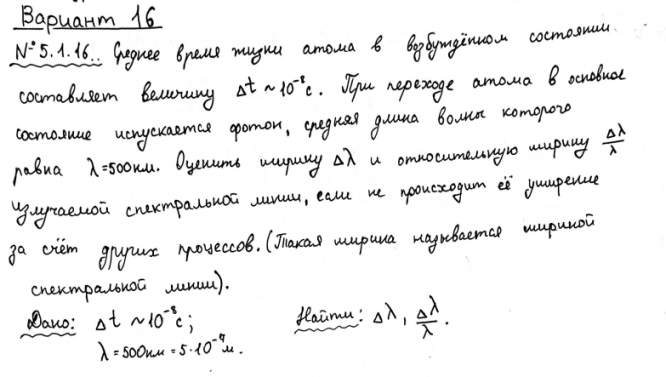 Вариант 16
№5.1.16. Среднее время жизни атома в возбуждённом состоянии
составляет величину Δt ~ 10⁻⁸с. При переходе атома в основное
состояние испускается фотон, средняя длина волны которого
равна λ=500нм. Оценить ширину Δλ и относительную ширину Δλ/λ
излучаемой спектральной линии, если не происходит её уширение
за счёт других процессов. (Такая ширина называется шириной
спектральной линии).
Дано: Δt ~ 10⁻⁸с; Найти: Δλ, Δλ/λ.
λ = 500нм = 5·10⁻⁷м.